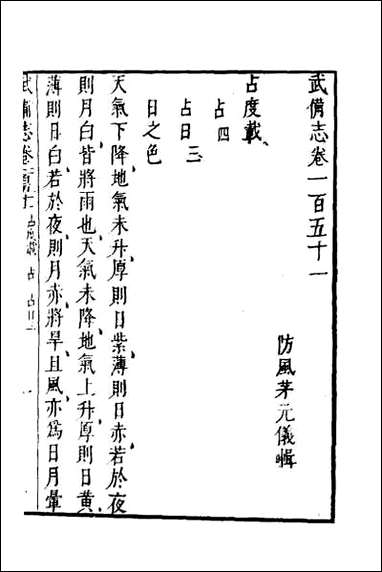 武備志卷一百五十一
防風茅元儀輯
占度載
占四
占日三
日之色
天氣下降地氣未升厚則日紫薄則日赤若於夜
則月白皆將雨也天氣未降地氣上升厚則日黄
薄則日白若於夜則月赤將旱且風亦為日月暈
武備志卷
占度載 占 占日三
一